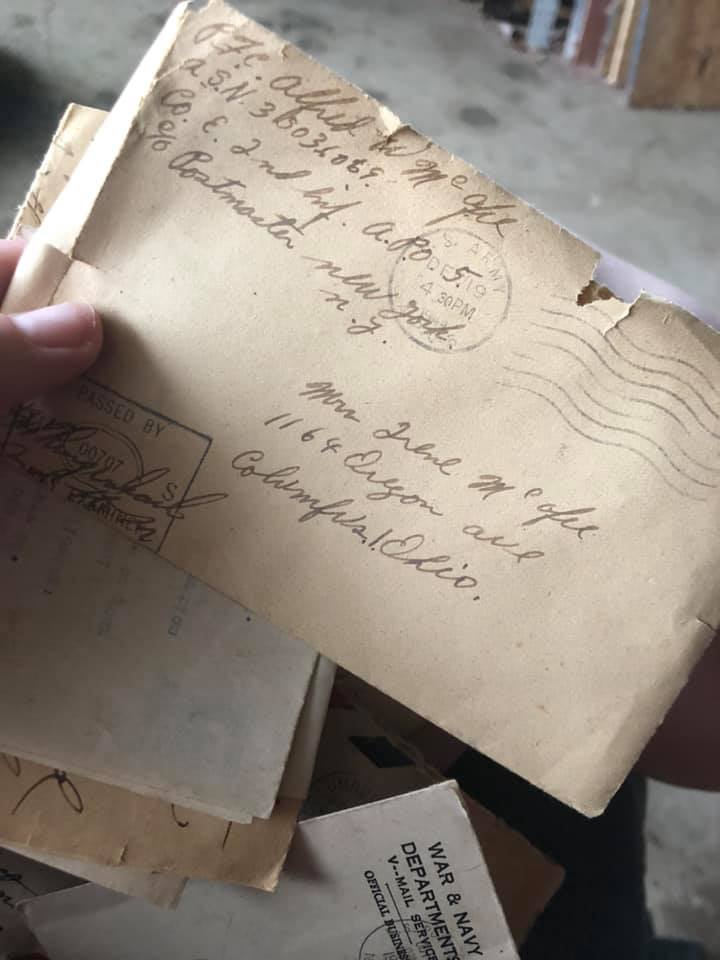 P.F.C. Alfred W McAfee
A.S.N. 36034069
Co. E. 2nd Inf. A.P.O 5.
c/o Postmaster New York
N.Y.
ARMY
19
4 30PM
Mrs Irene McAfee
1164 Oregon ave
Columbus, Ohio.
PASSED BY
00707
S
EXAMINER
WAR & NAVY
DEPARTMENTS
V--MAIL SERVICE
OFFICIAL BUSINESS